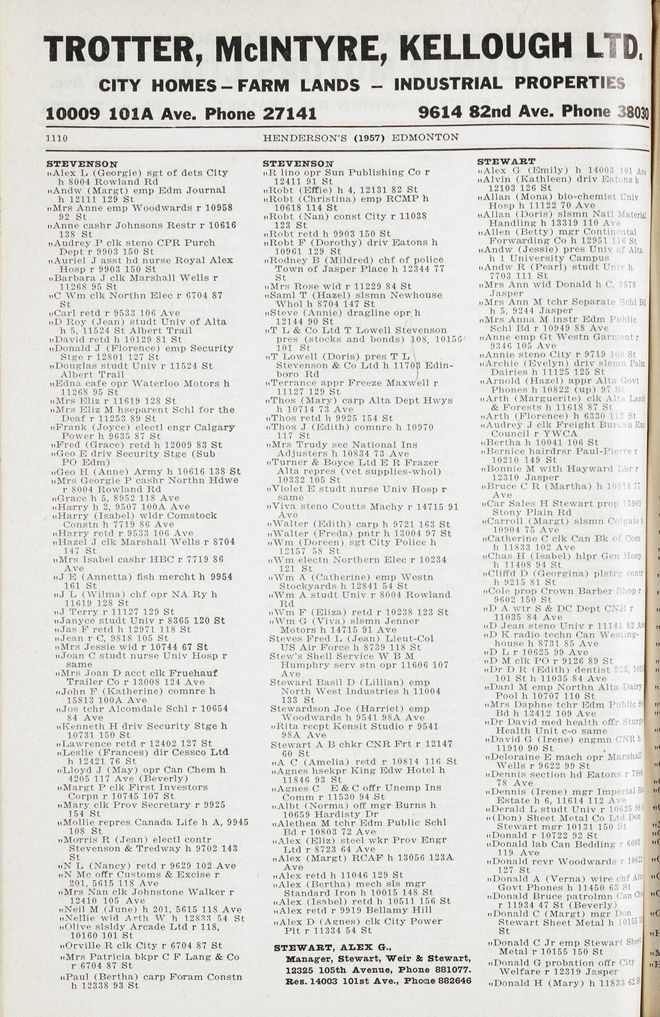 TROTTER, McINTYRE, KELLOUGH LTD.
CITY HOMES – FARM LANDS – INDUSTRIAL PROPERTIES
10009 101A Ave. Phone 27141 9614 82nd Ave. Phone 38030
1110 HENDERSON'S (1957) EDMONTON
STEVENSON
„Alex L (Georgie) sgt of dets City
h 8004 Rowland Rd
„Andw (Margt) emp Edm Journal
h 12111 129 St
„Mrs Anne emp Woodwards r 10958
92 St
„Anne cashr Johnsons Restr r 10616
138 St
„Audrey P clk steno CPR Purch
Dept r 9903 150 St
„Auriel J asst hd nurse Royal Alex
Hosp r 9903 150 St
„Barbara J clk Marshall Wells r
11268 95 St
„C Wm clk Northn Elec r 6704 87
St
„Carl retd r 9533 106 Ave
„D Roy (Jean) studt Univ of Alta
h 5, 11524 St Albert Trail
„David retd h 10129 81 St
„Donald J (Florence) emp Security
Stge r 12801 127 St
„Douglas studt Univ r 11524 St
Albert Trail
„Edna cafe opr Waterloo Motors h
11268 95 St
„Mrs Eliz r 11619 128 St
„Mrs Eliz M hseparent Schl for the
Deaf r 11253 89 St
„Frank (Joyce) electl engr Calgary
Power h 9635 87 St
„Fred (Grace) retd h 12009 83 St
„Geo E driv Security Stge (Sub
PO Edm)
„Geo H (Anne) Army h 10616 138 St
„Mrs Georgie P cashr Northn Hdwe
r 8004 Rowland Rd
„Grace h 5, 8952 118 Ave
„Harry h 2, 9507 100A Ave
„Harry (Isabel) wldr Comstock
Constn h 7719 86 Ave
„Harry retd r 9533 106 Ave
„Hazel J clk Marshall Wells r 8704
147 St
„Mrs Isabel cashr HBC r 7719 86
Ave
„J E (Annetta) fish mercht h 9954
161 St
„J L (Wilma) chf opr NA Ry h
11619 128 St
„J Terry r 11127 129 St
„Janyce studt Univ r 8365 120 St
„Jas F retd h 12971 118 St
„Jean r C, 9818 105 St
„Mrs Jessie wid r 10744 67 St
„Joan C studt nurse Univ Hosp r
same
„Mrs Joan D acct clk Fruehauf
Trailer Co r 13008 124 Ave
„John F (Katherine) comnre h
15813 100A Ave
„Jos tchr Alcomdale Schl r 10654
84 Ave
„Kenneth H driv Security Stge h
10731 150 St
„Lawrence retd r 12402 127 St
„Leslie (Frances) dir Cessco Ltd
h 12421 76 St
„Lloyd J (May) opr Can Chem h
4205 117 Ave (Beverly)
„Margt P clk First Investors
Corpn r 10745 107 St
„Mary clk Prov Secretary r 9925
154 St
„Mollie repres Canada Life h A, 9945
108 St
„Morris R (Jean) electl contr
Stevenson & Tredway h 9702 143
St
„N L (Nancy) retd r 9629 102 Ave
„N Mc offr Customs & Excise r
201, 5615 118 Ave
„Mrs Nan clk Johnstone Walker r
12410 105 Ave
„Neil M (June) h 201, 5615 118 Ave
„Nellie wid Arth W h 12833 54 St
„Olive slsldy Arcade Ltd r 118,
10160 101 St
„Orville R clk City r 6704 87 St
„Mrs Patricia bkpr C F Lang & Co
r 6704 87 St
„Paul (Bertha) carp Foram Constn
h 12338 93 St
STEVENSON
„R lino opr Sun Publishing Co r
12411 91 St
„Robt (Effie) h 4, 12131 82 St
„Robt (Christina) emp RCMP h
10618 114 St
„Robt (Nan) const City r 11038
123 St
„Robt retd h 9903 150 St
„Robt F (Dorothy) driv Eatons h
10961 129 St
„Rodney B (Mildred) chf of police
Town of Jasper Place h 12344 77
St
„Mrs Rose wid r 11229 84 St
„Saml T (Hazel) slsmn Newhouse
Whol h 8704 147 St
„Steve (Annie) dragline opr h
12144 90 St
„T L & Co Ltd T Lowell Stevenson
pres (stocks and bonds) 108, 10156
101 St
„T Lowell (Doris) pres T L
Stevenson & Co Ltd h 11703 Edin-
boro Rd
„Terrance appr Freeze Maxwell r
11127 129 St
„Thos (Mary) carp Alta Dept Hwys
h 10714 73 Ave
„Thos retd h 9925 154 St
„Thos J (Edith) comnre h 10970
117 St
„Mrs Trudy sec National Ins
Adjusters h 10834 73 Ave
„Turner & Boyce Ltd E R Frazer
Alta repres (vet supplies-whol)
10332 105 St
„Violet E studt nurse Univ Hosp r
same
„Viva steno Coutts Machy r 14715 91
Ave
„Walter (Edith) carp h 9721 163 St
„Walter (Freda) pntr h 13004 97 St
„Wm (Doreen) sgt City Police h
12157 58 St
„Wm electn Northern Elec r 10234
121 St
„Wm A (Catherine) emp Westn
Stockyards h 12841 54 St
„Wm A studt Univ r 8004 Rowland
Rd
„Wm F (Eliza) retd r 10238 123 St
„Wm G (Viva) slsmn Jenner
Motors h 14715 91 Ave
Steves Fred L (Jean) Lieut-Col
US Air Force h 8739 118 St
Stew's Shell Service W B M
Humphery serv stn opr 11606 107
Ave
Steward Basil D (Lillian) emp
North West Industries h 11004
133 St
Stewardson Joe (Harriet) emp
Woodwards h 9541 98A Ave
„Rita recpt Kensit Studio r 9541
98A Ave
Stewart A B chkr CNR Frt r 12147
60 St
„A C (Amelia) retd r 10814 116 St
„Agnes hsekpr King Edw Hotel h
11846 93 St
„Agnes C E & C offr Unemp Ins
Comm r 11530 94 St
„Albt (Norma) off mgr Burns h
10659 Hardisty Dr
„Alethea M tchr Edm Public Schl
Bd r 10803 72 Ave
„Alex (Eliz) steel wkr Prov Engr
Ltd r 8723 64 Ave
„Alex (Margt) RCAF h 13056 123A
Ave
„Alex retd h 11046 129 St
„Alex (Bertha) mech sls mgr
Standard Iron h 10015 148 St
„Alex (Isabel) retd h 10511 156 St
„Alex retd r 9919 Bellamy Hill
„Alex D (Agnes) clk City Power
Plt r 11334 54 St
STEWART, ALEX G.,
Manager, Stewart, Weir & Stewart,
12325 105th Avenue, Phone 881077.
Res. 14003 101st Ave., Phone 882646
STEWART
„Alex G (Emily) h 14003 101 Ave
„Alvin (Kathleen) driv Eatons h
12103 126 St
„Allan (Mona) bio-chemist Univ
Hosp h 11122 70 Ave
„Allan (Doris) slsmn Natl Material
Handling h 13319 110 Ave
„Allen (Betty) mgr Continental
Forwarding Co h 12951 116 St
„Andw (Jessie) pres Univ of Alta
h 1 University Campus
„Andw R (Pearl) studt Univ h
7703 111 St
„Mrs Ann wid Donald h C, 9578
Jasper
„Mrs Ann M tchr Separate Schl Bd
h 5, 9244 Jasper
„Mrs Anna M instr Edm Public
Schl Bd r 10949 88 Ave
„Anne emp Gt Westn Garment r
9346 105 Ave
„Annie steno City r 9719 100 St
„Archie (Evelyn) driv slsmn Palm
Dairies h 11125 125 St
„Arnold (Hazel) appr Alta Govt
Phones h 10822 (up) 97 St
„Arth (Marguerite) clk Alta Land
& Forests h 11618 87 St
„Arth (Florence) h 6330 112 St
„Audrey J clk Freight Bureau En
Council r YWCA
„Bertha h 10041 106 St
„Bernice hairdrsr Paul-Pierre r
10210 149 St
„Bonnie M with Hayward Lbr r
12310 Jasper
„Bruce C R (Martha) h 10618 77
Ave
„Car Sales H Stewart prop 15901
Stony Plain Rd
„Carroll (Margt) slsmn Colgate h
10904 75 Ave
„Catherine C clk Can Bk of Com
h 11833 102 Ave
„Chas H (Isabel) hlpr Gen Hosp
h 11408 94 St
„Cliffd D (Georgina) plstrg contr
h 9215 81 St
„Cole prop Crown Barber Shop r
9602 150 St
„D A wtr S & DC Dept CNR r
11035 84 Ave
„D Jean steno Univ r 11141 82 Ave
„D K radio techn Can Westing-
house h 8731 85 Ave
„D L r 10625 99 Ave
„D M clk PO r 9126 89 St
„Dr D R (Edith) dentist 525, 10
101 St h 11035 84 Ave
„Danl M emp Northn Alta Dairy
Pool h 10707 110 St
„Mrs Daphne tchr Edm Public S
Bd h 13412 109 Ave
„Dr David med health offr Sturge
Health Unit c-o same
„David G (Irene) engmn CNR h
11910 90 St
„Deloraine E mach opr Marshall
Wells r 9622 99 St
„Dennis section hd Eatons r 7908
78 Ave
„Dennis (Irene) mgr Imperial R
Estate h 6, 11614 112 Ave
„Derald L studt Univ r 10625 99
„(Don) Sheet Metal Co Ltd Don
Stewart mgr 10131 150 St
„Donald r 10722 92 St
„Donald lab Can Bedding r 6002
119 Ave
„Donald rcvr Woodwards r 1062
127 St
„Donald A (Verna) wire chf Alta
Govt Phones h 11450 63 St
„Donald Bruce patrolmn Can
r 11934 47 St (Beverly)
„Donald C (Margt) mgr Don
Stewart Sheet Metal h 10155
St
„Donald C Jr emp Stewart Sheet
Metal r 10155 150 St
„Donald G probation offr City
Welfare r 12319 Jasper
„Donald H (Mary) h 11833 62 S